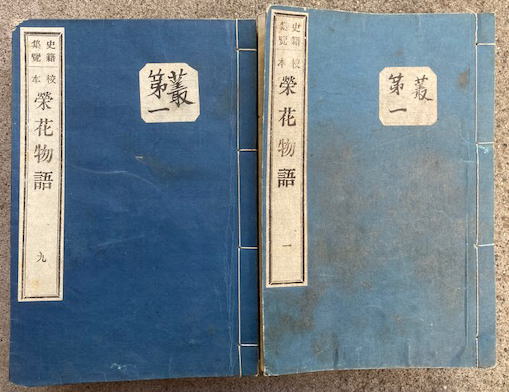 史籍
集覽
校本
榮花物語
九
叢
第一
史籍
集覽
校本
榮花物語
一
叢
第一